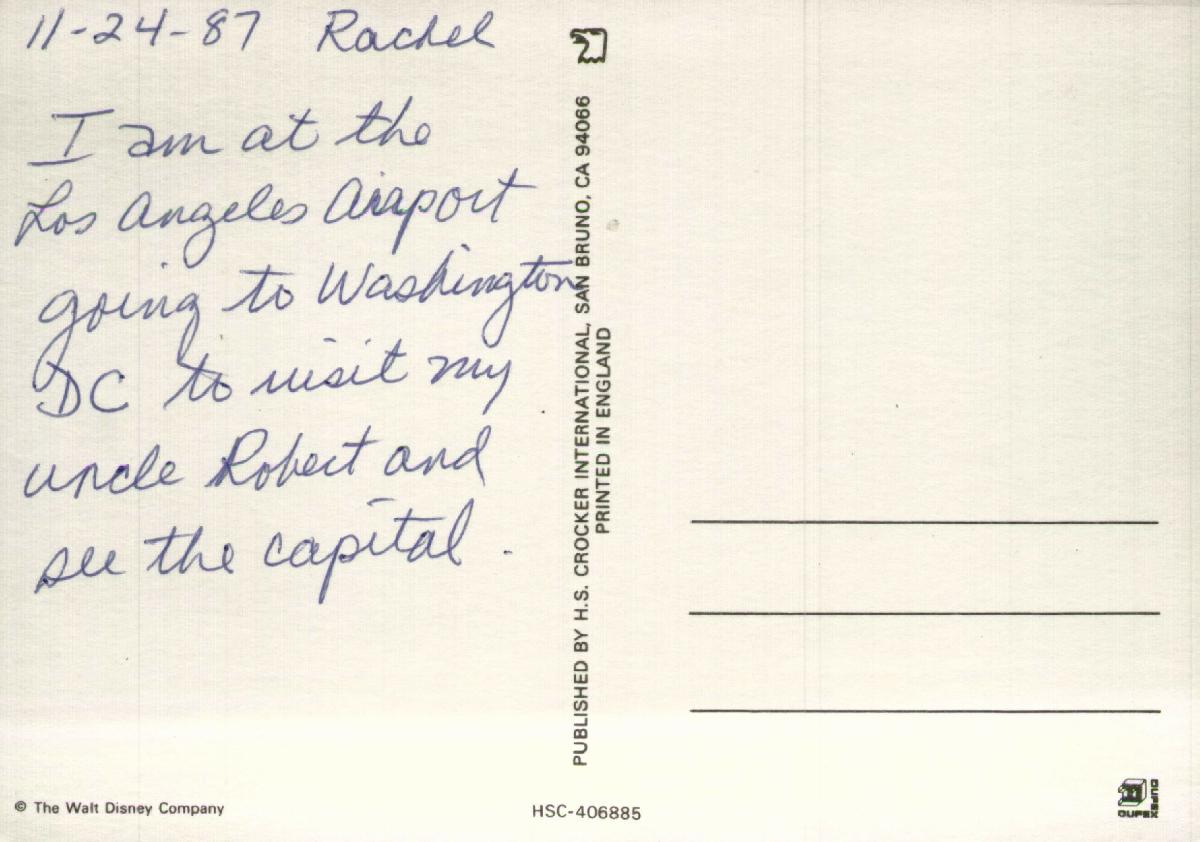 11-24-87 Rachel
I am at the
Los Angeles Airport
going to Washington
DC to visit my
uncle Robert and
see the capital.
PUBLISHED BY H.S. CROCKER INTERNATIONAL, SAN BRUNO, CA 94066
PRINTED IN ENGLAND
© The Walt Disney Company
HSC-406885
DUFEX
DUFEX